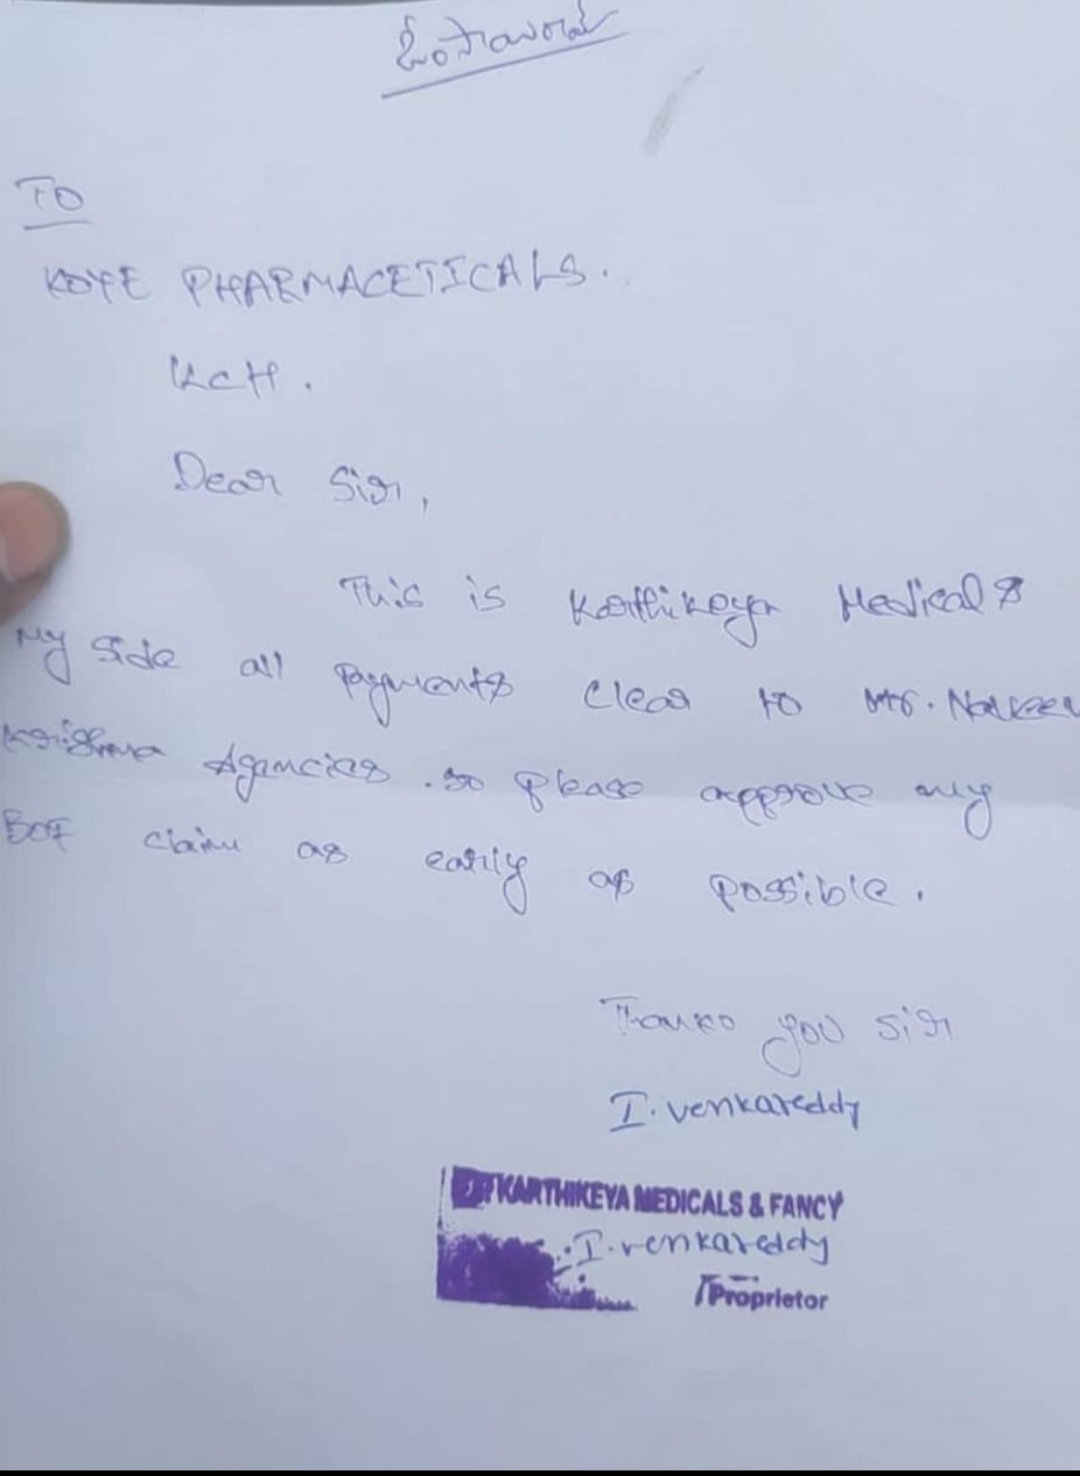 TO
KOYE PHARMACETICALS.
KCH.
Dear Sir,
This is Karthikeya Medicals
My side all payments clear to M/s. Naveen
Krishna Agencies. so please approve my
BOE claim as early as possible.
Thank you sir
I. venkareddy
KARTHIKEYA MEDICALS & FANCY
I. venkareddy
Proprietor